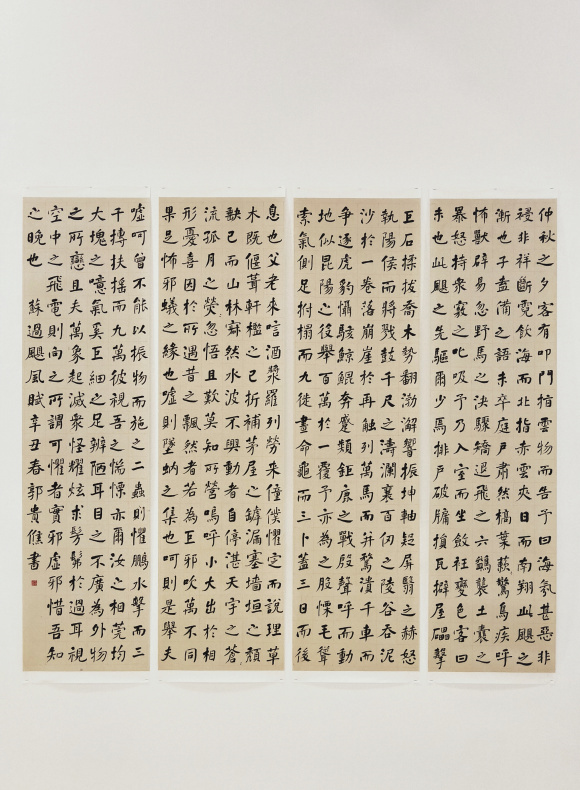 仲秋之夕客有叩門指雲物而告予曰海氛甚惡非
祲非祥斷霓飲海而北指赤雲夾日而南翔此颶之
漸也子盍備之語未卒庭戶肅然槁葉蔌驚鳥疾呼
怖獸辟易忽野馬之決驟矯退飛之六鷁襲土囊之
暴怒持眾竅之叱吸予乃入室而坐斂衽變色客曰
未也此颶之先驅爾少焉排戶破牖損瓦擗屋礧擊
巨石揉拔喬木勢翻渤澥響振坤軸疑屏翳之赫怒
執陽侯而將戮鼓千尺之濤瀾襄百仞之陵谷吞泥
沙於一卷落崩崖於再觸列萬馬而並騖潰千車而
爭逐虎豹懾駭鯨鯤奔蹙類鉅鹿之戰殷聲呼而動
地似昆陽之役舉百萬於一覆予亦為之股慄毛聳
索氣側足拊榻而九徙晝命龜而三卜蓋三日而後
息也父老來唁酒漿羅列勞來僮僕懼定而說理草
木既偃葺軒檻之已折補茅屋之罅漏塞墻垣之頹
缺已而山林寂然水波不興動者自停湛天宇之蒼
流孤月之熒忽悟且歎莫知所營嗚呼小大出於相
形憂喜因於所遇昔之飄然者若為巨邪吹萬不同
果足怖邪蟻之緣也噓則墜蚋之集也呵則是舉夫
噓呵曾不能以振物而施之二蟲則懼鵬水擊而三
千摶扶搖而九萬彼視吾之惴慄亦爾汝之相莞均
大塊之噫氣奚巨細之足辨陋耳目之不廣為外物
之所戀且夫萬象起滅眾怪耀炫求髣髴於過耳視
空中之飛電則向之所謂可懼者實邪虛邪惜吾知
之晚也 蘇過颶風賦辛丑春郭貴僬書